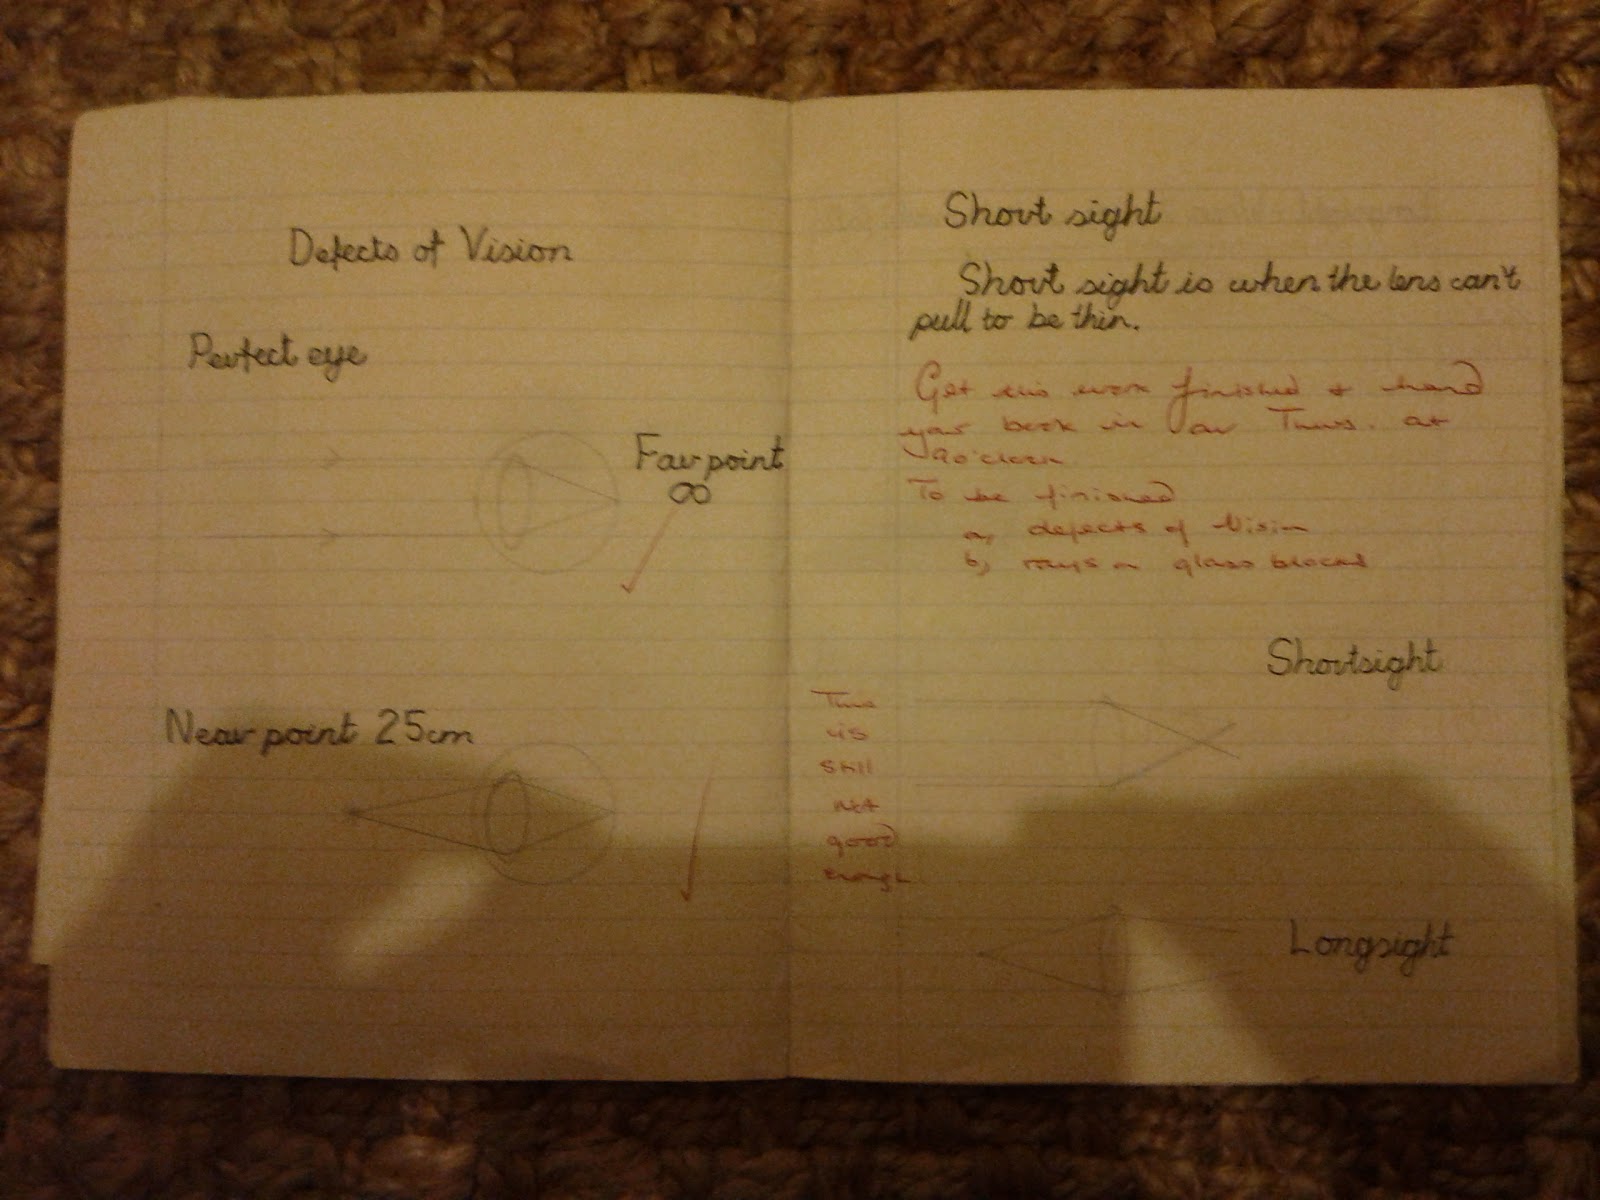 Defects of Vision
Perfect eye
Far point
∞
Near point 25cm
Short sight
Short sight is when the lens can't
pull to be thin.
Get this work finished + hand
your book in on Thurs. at
9 o'clock
To be finished
a, defects of vision
b, rays on glass blocks
Shortsight
This
is
still
not
good
enough
Longsight